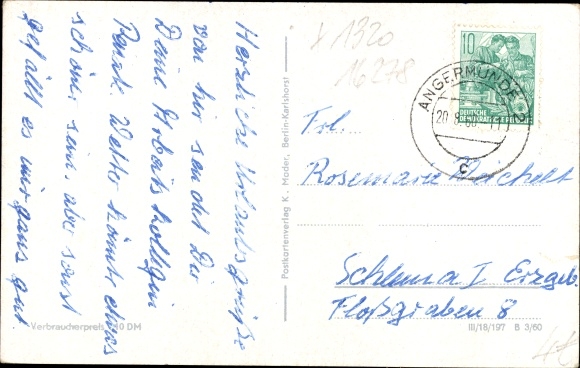 Herzliche Urlaubsgrüße
von hier sendet Dir
Deine Arbeitskollegin
Wetter könnte etwas
schöner sein, aber sonst
gefällt es mir ganz gut
Verbraucherpreis DM
Postkartenverlag K. Moder, Berlin-Karlshorst
x 1320
16278
10
DEUTSCHE
DEMOKRATISCHE
ANGERMÜNDE
20.8.60
c
Frl.
Rosemarie Reichelt
Schlema I Erzgeb.
Floßgraben 8
III/18/197 B 3/60
4€